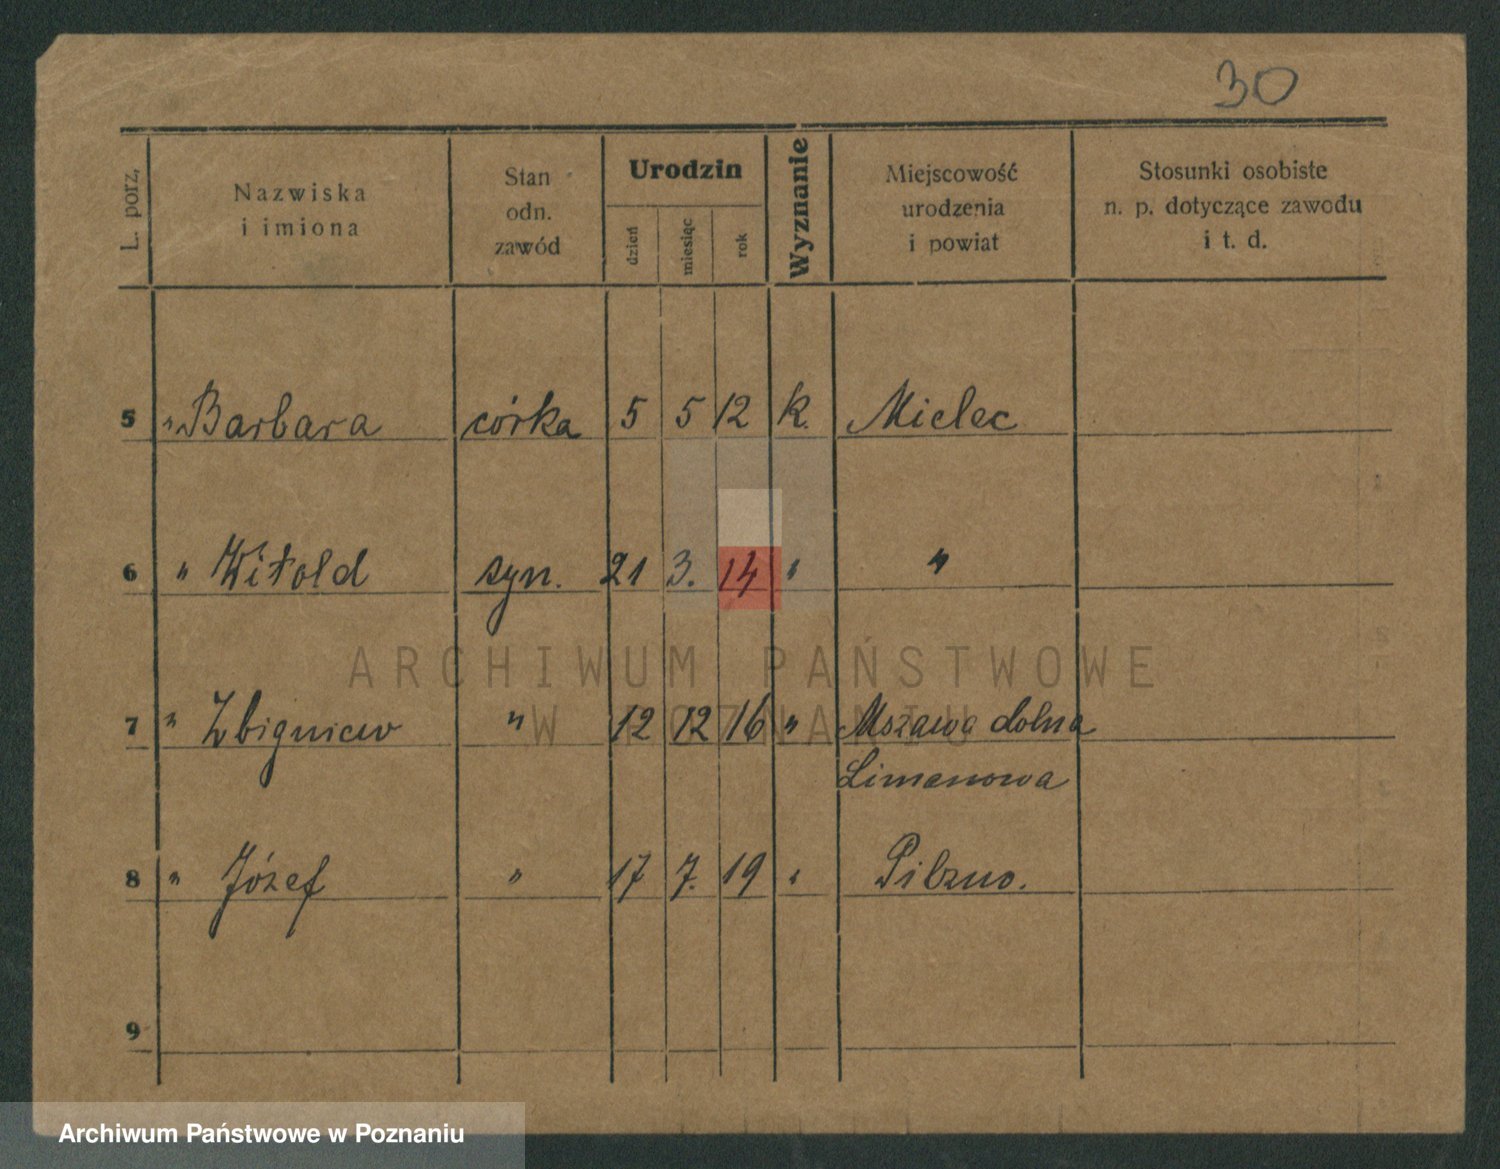 30
L. porz,
Nazwiska
i imiona
Stan
odn.
zawód
Urodzin
dzień
miesiąc
rok
Wyznanie
Miejscowość
urodzenia
i powiat
Stosunki osobiste
n. p. dotyczące zawodu
i t. d.
5 " Barbara córka 5 5 12 k. Mielec
6 " Witold syn. 21 3. 14 " "
ARCHIWUM PAŃSTWOWE
W POZNANIU
7 " Zbigniew " 12 12 16 " Mszawa dolna
Limanowa
8 " Józef " 17 7. 19 " Pilzno.
9
Archiwum Państwowe w Poznaniu